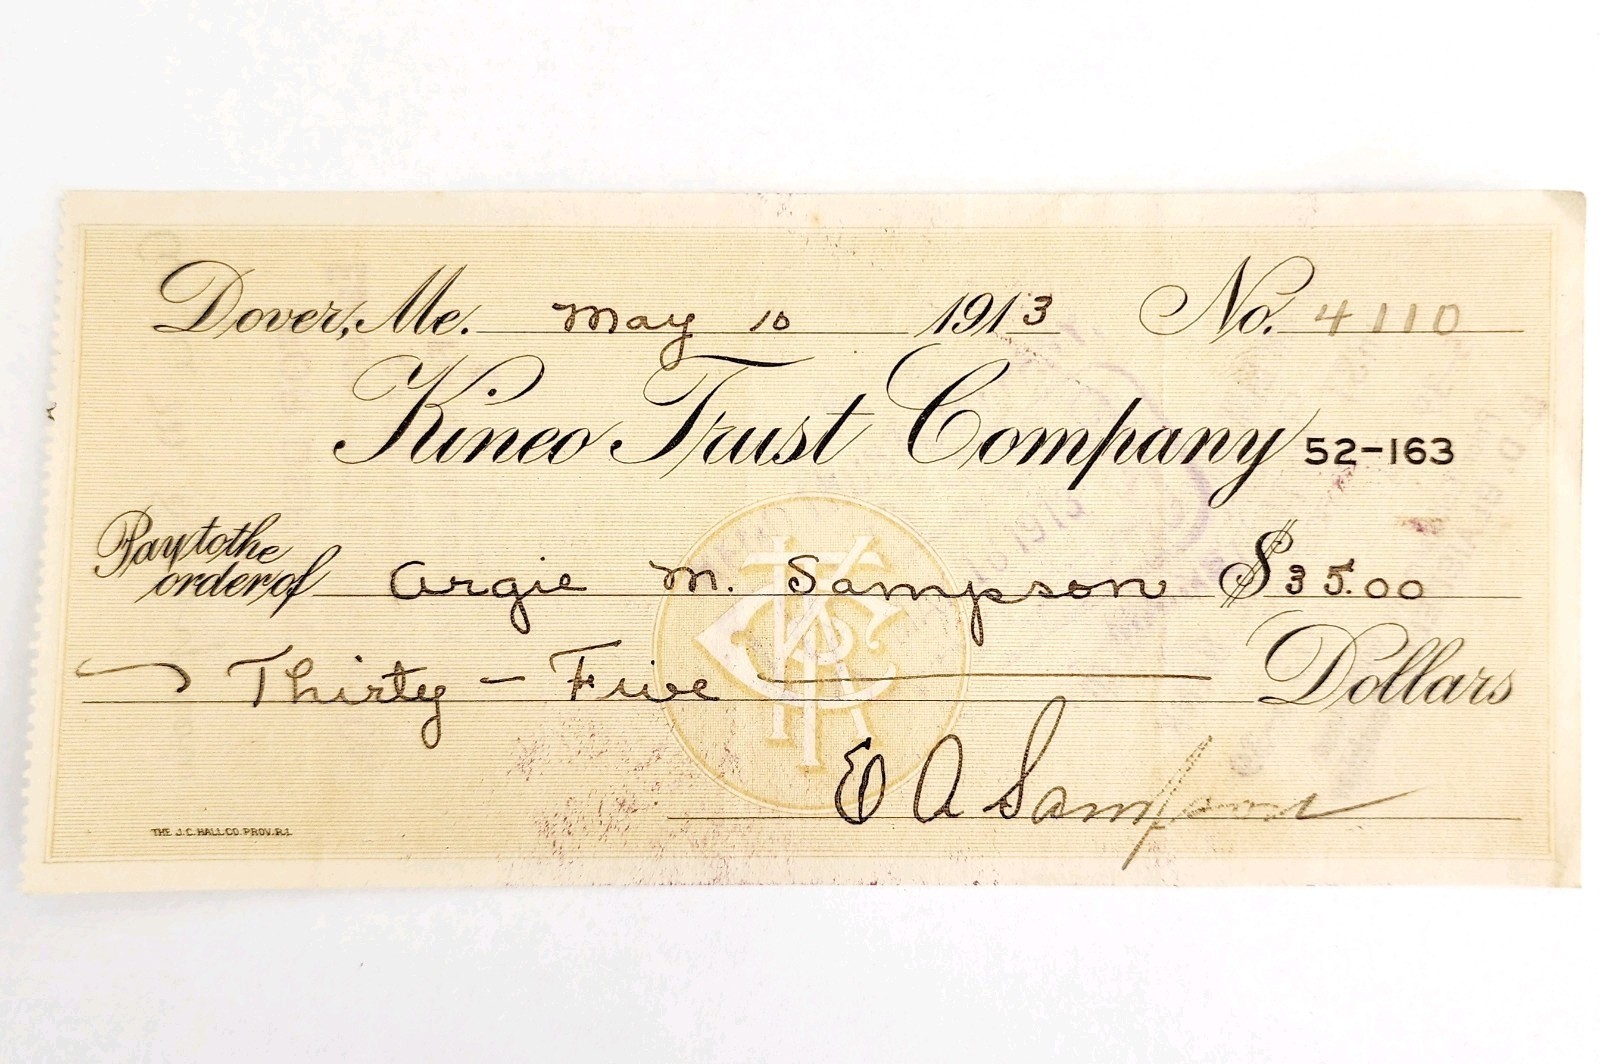 Dover, Me. May 10 1913 No. 4110
Kineo Trust Company 52-163
Pay to the
order of Argie M. Sampson $35.00
Thirty - Five Dollars
E A Sampson
THE J.C. HALL CO. PROV. R.I.